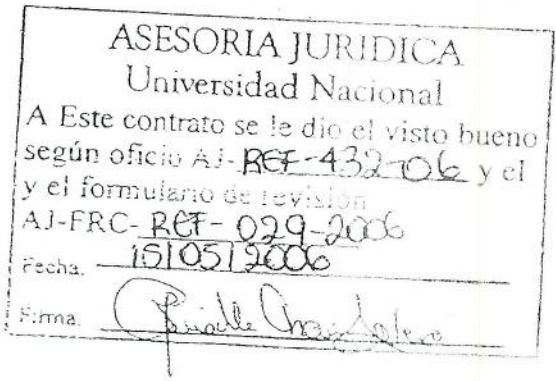 ASESORIA JURIDICA
Universidad Nacional
A Este contrato se le dio el visto bueno
según oficio AJ-REF-432-06 y el
y el formulario de revisión
AJ-FRC-REF-029-2006
Fecha. 15/05/2006
Firma.